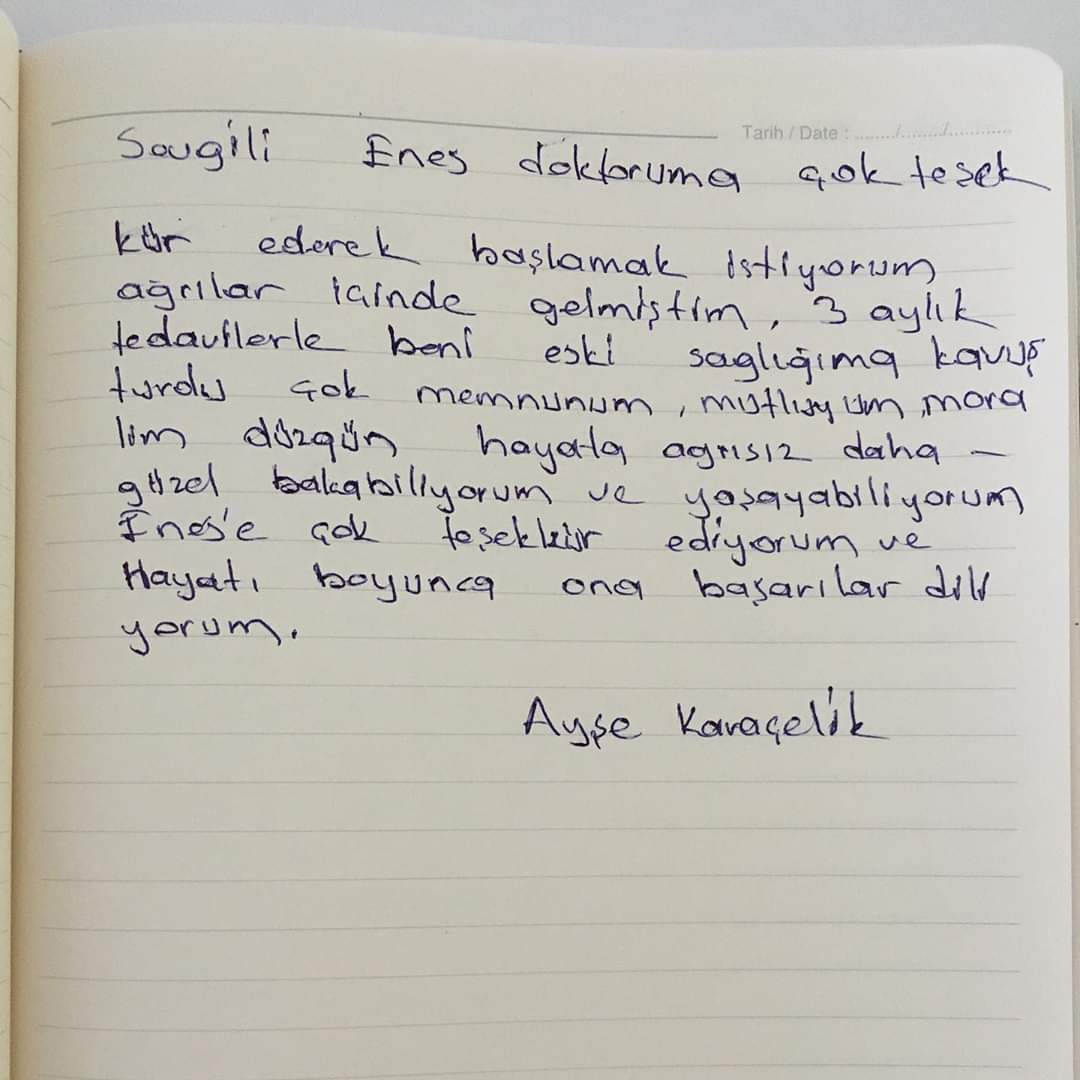 Tarih / Date : ......../......../............
Sevgili Enes doktoruma çok teşek
kür ederek başlamak istiyorum
ağrılar içinde gelmiştim, 3 aylık
tedavilerle beni eski saglığıma kavuş
turdu çok memnunum, mutluyum, mora
lim düzgün hayata agrısız daha –
güzel bakabiliyorum ve yaşayabiliyorum
Enes'e çok teşekkür ediyorum ve
Hayatı boyunca ona başarılar dili
yorum.
Ayşe Karaçelik